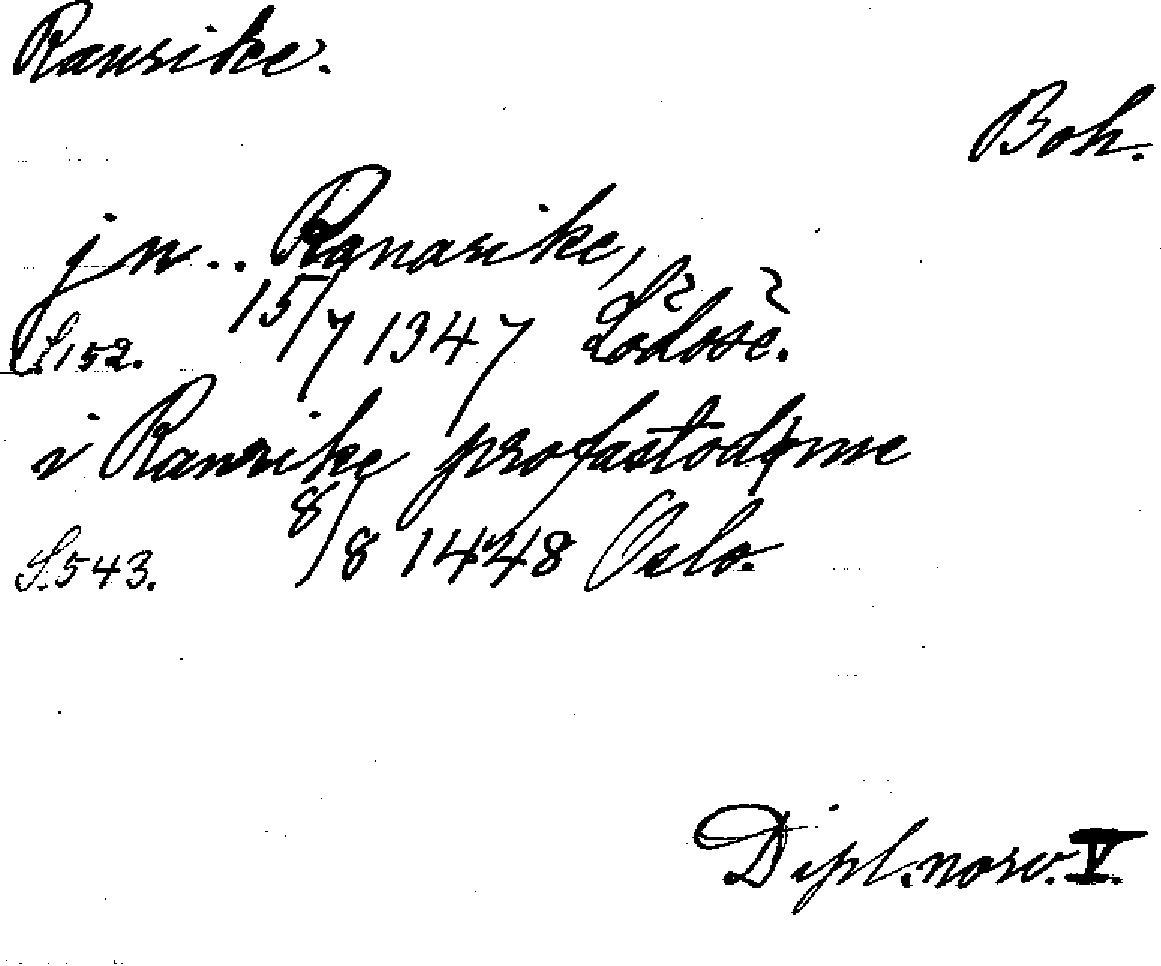 Ranrike.
Boh.
jn.. Ranarike,
S.152. 15/7 1347 Lödöse.
i Ranrike profastodøme
S.543. 8/8 1448 Oslo.
Dipl. norv. V.